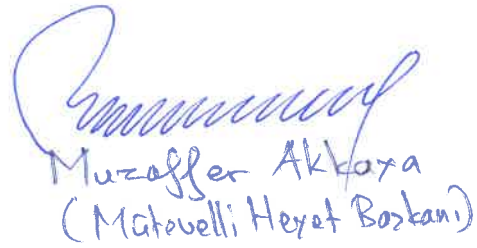 Muzaffer Akkaya
(Mütevelli Heyet Başkanı)